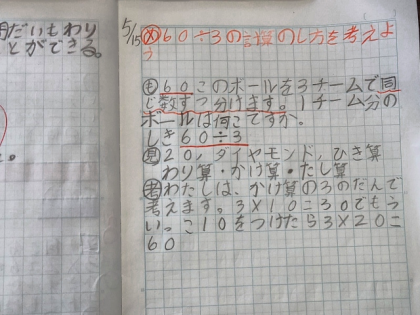 だいもわり
とができる。
5/15 ㋱60÷3の計算のし方を考えよ
う
㋲60このボールを3チームで同
じ数ずつ分けます。1チーム分の
ボールは何こですか。
しき60÷3
㋯20,ダイヤモンド,ひき算
わり算・かけ算・たし算
㋕わたしは、かけ算の3のだんで
考えます。3×10=30でもう
い。こ10をつけたら3×20=
60